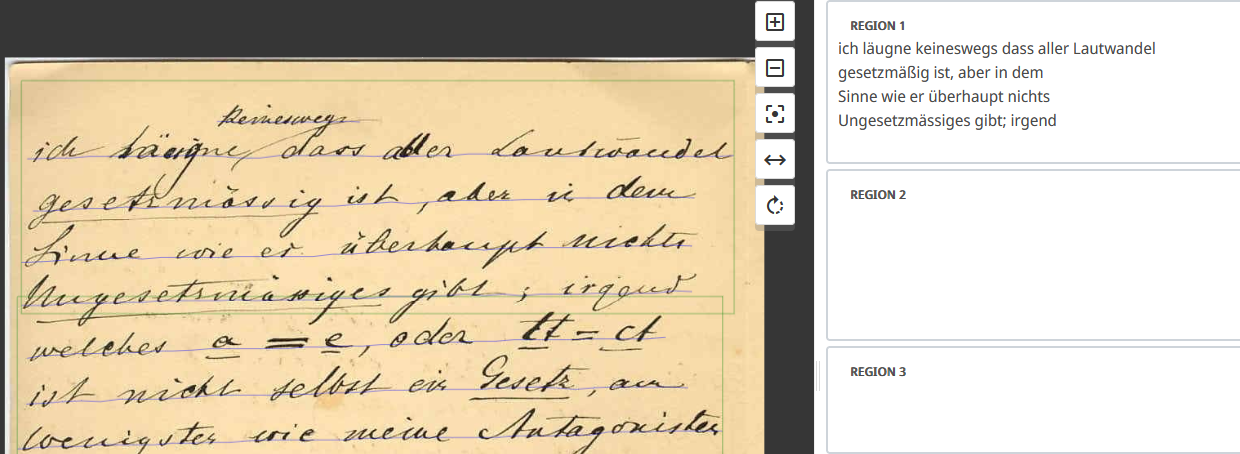 keineswegs
ich läugne dass aller Lautwandel
gesetzmässig ist, aber in dem
Sinne wie er überhaupt nichts
Ungesetzmässiges gibt; irgend
welches a = e, oder tt = ct
ist nicht selbst ein Gesetz, am
wenigsten wie meine Antagonisten
REGION 1
ich läugne keineswegs dass aller Lautwandel
gesetzmäßig ist, aber in dem
Sinne wie er überhaupt nichts
Ungesetzmässiges gibt; irgend
REGION 2
REGION 3